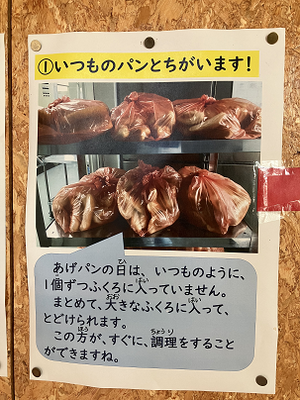 ①いつものパンとちがいます!
あげパンの日は、いつものように、
1個ずつふくろに入っていません。
まとめて、大きなふくろに入って、
とどけられます。
この方が、すぐに、調理をすること
ができますね。